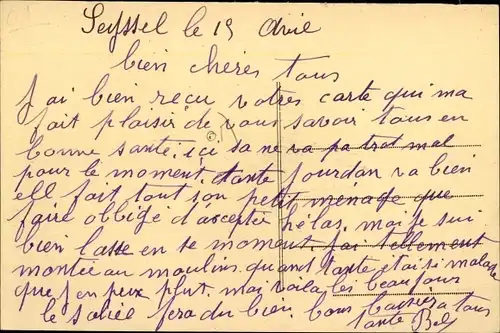 Seyssel le 19 Avril
bien chères tous
J'ai bien reçu votres carte qui ma
fait plaisir de vous savoir tous en
bonne santé. içi sa ne va pa trot mal
pour le moment. tante Jourdan va bien
ell fait tout son petit ménage que
faire obbigé d'accepté hélas. mai je sui
bien lasse en se moment. j'ai tellement
montée au moulins. quant tante étai si malade
que j'en peux plut. mai voila les beau jour
le soleil fera du bien. bons baisers a tous
tante Bel